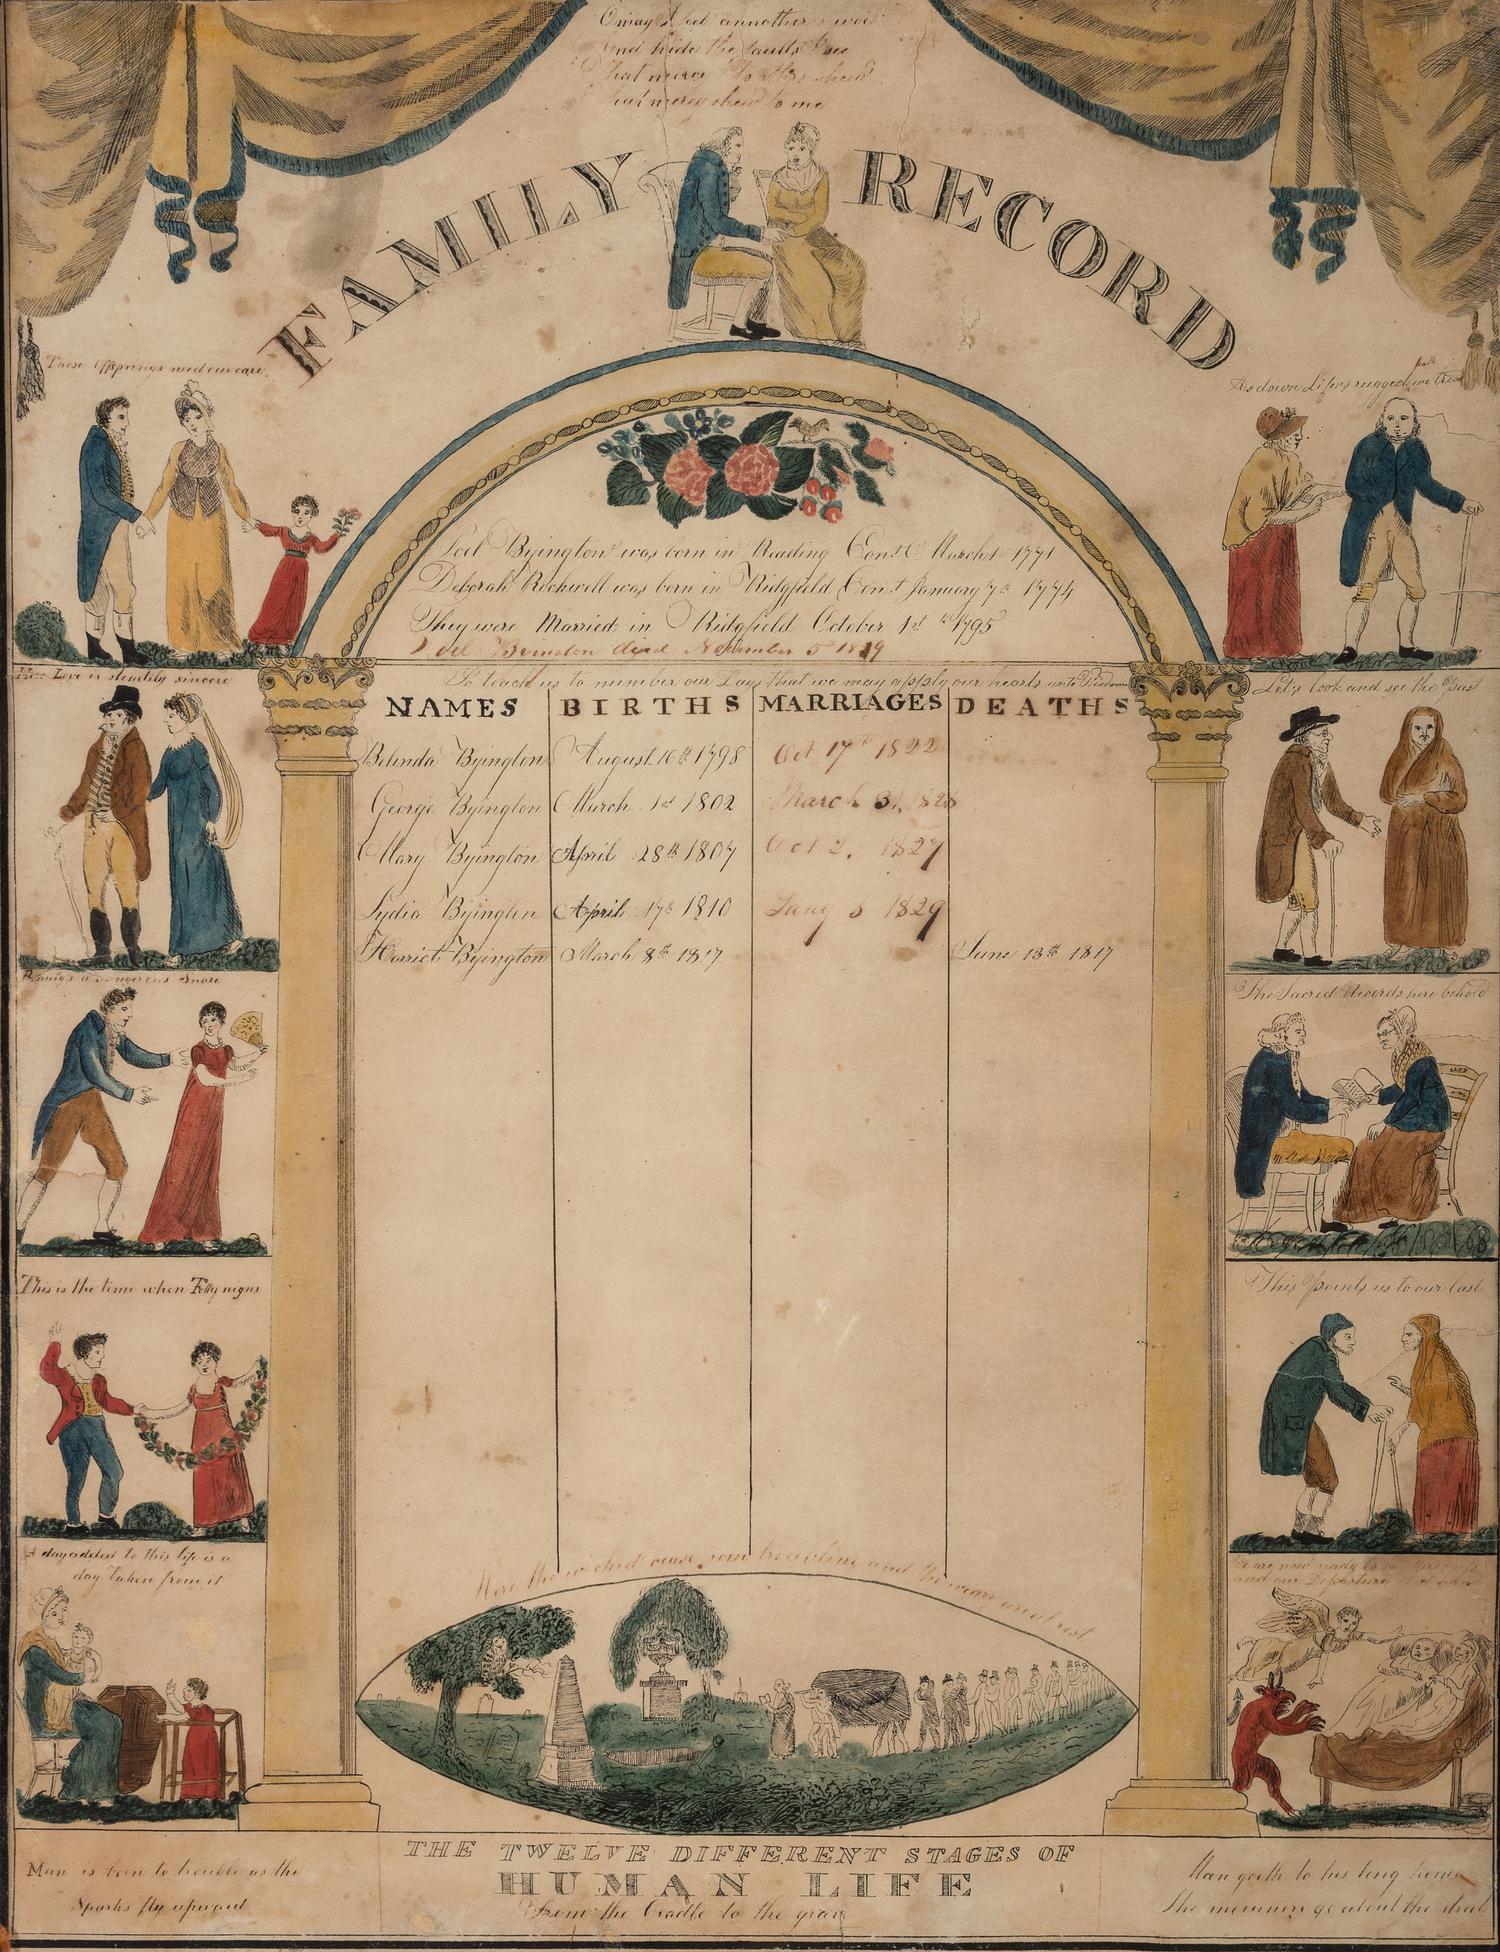 O may I feel annother's woe
And hide the faults I see
That mercy I to others shew
That mercy shew to me
FAMILY RECORD
These Offsprings need our care.
As down Life's rugged path we tread
Joel Byington was born in Reading Conct March 1 1771
Deborah Rockwell was born in Ridgfield Conct January 7th 1774
They were Married in Ridgfield October 1st 1795
Joel Byington died November 5 1829
So teach us to number our Days that we may apply our hearts unto Wisdom
Love is steadily sincere
Let's look and see the Past
NAMES BIRTHS MARRIAGES DEATHS
Belinda Byington August 16th 1798 Oct 17th 1822
George Byington March 1st 1802 March 31, 1828
Mary Byington April 28th 1807 Oct 2, 1827
Lydia Byington April 17th 1810 Jany 8 1829
Harriet Byington March 8th 1817 June 13th 1817
Beauty's a dangerous Snare
The Sacred Records here behold
This is the time when Folly reigns
This points us to our last
A day added to this life is a
day taken from it
We are now ready to
and our Departure
Here the wicked cease from troubling and the weary are at rest
THE TWELVE DIFFERENT STAGES OF
HUMAN LIFE
From the Cradle to the grave
Man is born to trouble as the
Sparks fly upward
Man goeth to his long home
The mourners go about the street